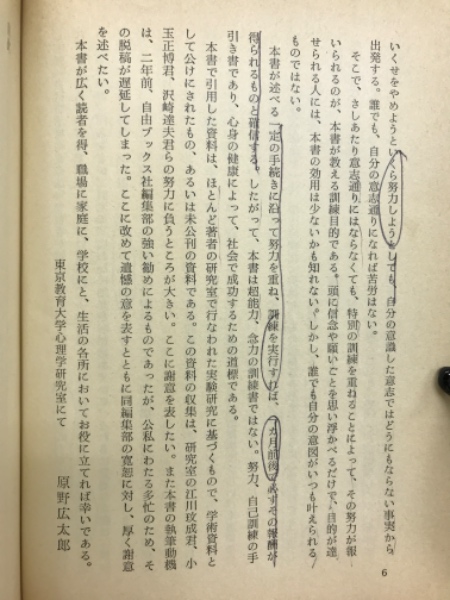 いくせをやめようといくら努力しようとしても、自分の意識した意志ではどうにもならない事実から
出発する。誰でも、自分の意志通りになれば苦労はない。
そこで、さしあたり意志通りにはならなくても、特別の訓練を重ねることによって、その努力が報
いられるのが、本書が教える訓練目的である。頭に信念や願いごとを思い浮かべるだけで、目的が達
せられる人には、本書の効用は少ないかも知れない。しかし、誰でも自分の意図がいつも叶えられる
ものではない。
本書が述べる一定の手続きに沿って努力を重ね、訓練を実行すれば、一カ月前後で必ずその報酬が
得られるものと確信する。したがって、本書は超能力、念力の訓練書ではない。努力、自己訓練の手
引き書であり、心身の健康によって、社会で成功するための道標である。
本書で引用した資料は、ほとんど著者の研究室で行なわれた実験研究に基づくもので、学術資料と
して公けにされたもの、あるいは未公刊の資料である。この資料の収集は、研究室の江川玟成君、小
玉正博君、沢崎達夫君らの努力に負うところが大きい。ここに謝意を表したい。また本書の執筆動機
は、二年前、自由ブックス社編集部の強い勧めによるものであったが、公私にわたる多忙のため、そ
の脱稿が遅延してしまった。ここに改めて遺憾の意を表すとともに同編集部の寛恕に対し、厚く謝意
を述べたい。
本書が広く読者を得、職場に家庭に、学校にと、生活の各所においてお役に立てれば幸いである。
東京教育大学心理学研究室にて
原野広太郎
6